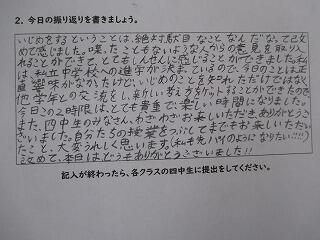 2. 今日の振り返りを書きましょう。
いじめをするということは、絶対駄目なことなんだなって改
めて感じました。喋ったこともないような人からの意見を取り入
れることができて、とてもしんせんに感じることができました。私
は、私立中学校への進学が決まっているので、今日のことは正直
興味がなかったけど、いじめのことを知れただけではなく
他学年との交流をし、新しい考え方をゲットすることができたので
今日この2時限は、とても貴重で、楽しい時間になりました。
また、四中生のみなさん、わざわざお来しいただき、ありがとうご
ざいました。自分たちの授業をつぶしてまでもお来しいただい
たこと、大変うれしく思います。(私も先パイのようになりたい!!!!)
改めて、本日はどうもありがとうございました!!
記入が終わったら、各クラスの四中生に提出をしてください。